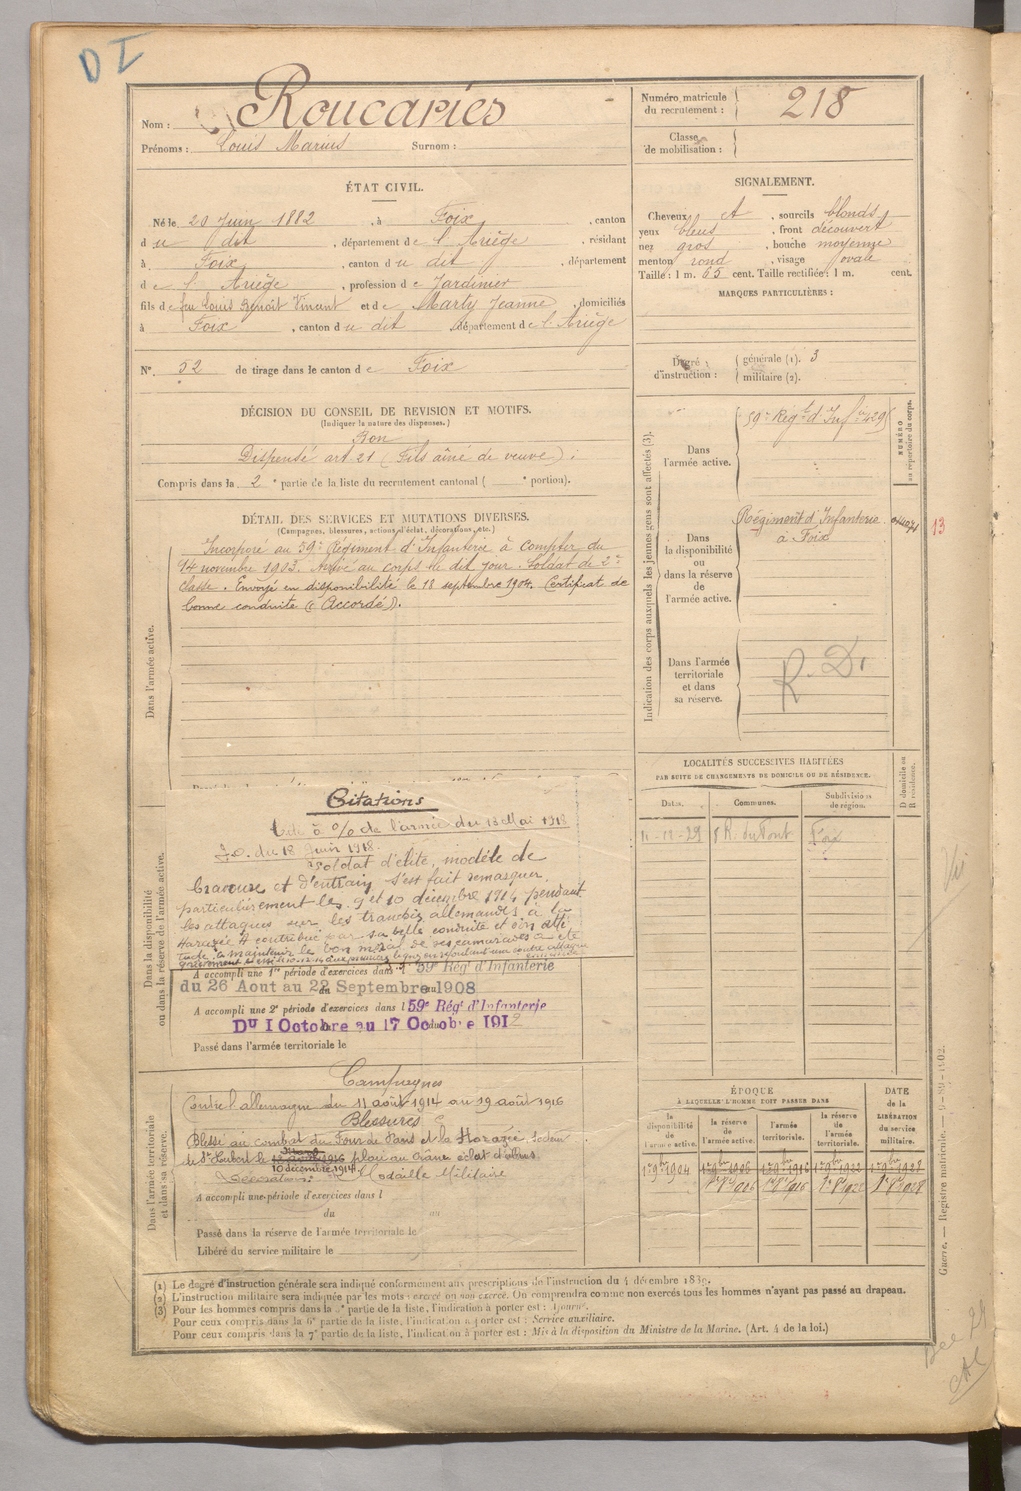 D I
Nom : Roucariès
Prénoms : Louis Marius Surnom :
Numéro matricule du recrutement : 218
Classe de mobilisation :
ÉTAT CIVIL.
Né le 20 Juin 1882, à Foix, canton
du dit, département de l'Ariège, résidant
à Foix, canton du dit, département
de l'Ariège, profession de Jardinier
fils de feu Louis Benoît Vincent et de Marty Jeanne, domiciliés
à Foix, canton du dit, département de l'Ariège
N° 52 de tirage dans le canton de Foix
SIGNALEMENT.
Cheveux et, sourcils blonds
yeux bleus, front découvert
nez gros, bouche moyenne
menton rond, visage ovale
Taille : 1 m. 65 cent. Taille rectifiée : 1 m. cent.
MARQUES PARTICULIÈRES :
Degré d'instruction : générale (1). 3
militaire (2).
DÉCISION DU CONSEIL DE REVISION ET MOTIFS.
(Indiquer la nature des dispenses.)
Bon
Dispensé art. 21 (Fils aîné de veuve) ;
Compris dans la 2e partie de la liste du recrutement cantonal ( e portion).
DÉTAIL DES SERVICES ET MUTATIONS DIVERSES.
(Campagnes, blessures, actions d'éclat, décorations, etc.)
Dans l'armée active.
Incorporé au 59e Régiment d'Infanterie à compter du
14 novembre 1903. Arrivé au corps le dit jour. Soldat de 2e
classe. Envoyé en disponibilité le 18 septembre 1904. Certificat de
bonne conduite « Accordé ».
Dans la disponibilité ou dans la réserve de l'armée active.
Citations
Cité à % de l'armée du 13 Mai 1918
J.O. du 18 Juin 1918.
Soldat d'élite, modèle de
bravoure et d'entrain, s'est fait remarquer
particulièrement les 9 et 10 décembre 1914 pendant
les attaques sur les tranchées allemandes à la
Harazée A contribué par sa belle conduite et son atti
tude à maintenir le bon moral de ses camarades a été
A accompli une 1re période d'exercices dans le 59e Rég d'Infanterie
du 26 Aout au 22 Septembre 1908
A accompli une 2e période d'exercices dans l 59e Rég d'Infanterie
Du 1 Octobre au 17 Octobre 1912
Passé dans l'armée territoriale le
Dans l'armée territoriale et dans sa réserve.
Campagnes
Contre l'allemagne du 11 août 1914 au 19 août 1916
Blessures
Blessé au combat du Four de Paris et la Harazée, secteur
de St Hubert le
10 décembre 1914 plaie au crâne éclat d'obus.
Décoration : Médaille Militaire
A accompli une période d'exercices dans l
du au
Passé dans la réserve de l'armée territoriale le
Libéré du service militaire le
Indication des corps auxquels les jeunes gens sont affectés (3).
NUMÉRO au répertoire du corps.
Dans l'armée active.
59e Régt d'Inf
Dans la disponibilité ou dans la réserve de l'armée active.
Régiment d'Infanterie
à Foix
13
Dans l'armée territoriale et dans sa réserve.
R. D.
LOCALITÉS SUCCESSIVES HABITÉES
PAR SUITE DE CHANGEMENTS DE DOMICILE OU DE RÉSIDENCE.
Dates. Communes. Subdivisions de région. D domicile ou R résidence.
11-12-29 R. du Pont Foix
ÉPOQUE
À LAQUELLE L'HOMME DOIT PASSER DANS
DATE de la LIBÉRATION du service militaire.
la disponibilité de l'armée active. la réserve de l'armée active. l'armée territoriale. la réserve de l'armée territoriale.
1 9bre 1904 1 9bre 1906 1 9bre 1916 1 9bre 1922 1 9bre 1928
Vu
Guerre. — Registre matricule. — 1902.
(1) Le degré d'instruction générale sera indiqué conformément aux prescriptions de l'instruction du 4 décembre 1889.
(2) L'instruction militaire sera indiquée par les mots : exercé ou non exercé. On comprendra comme non exercés tous les hommes n'ayant pas passé au drapeau.
(3) Pour les hommes compris dans la 5e partie de la liste, l'indication à porter est : Ajourné.
Pour ceux compris dans la 6e partie de la liste, l'indication à porter est : Service auxiliaire.
Pour ceux compris dans la 7e partie de la liste, l'indication à porter est : Mis à la disposition du Ministre de la Marine. (Art. 4 de la loi.)